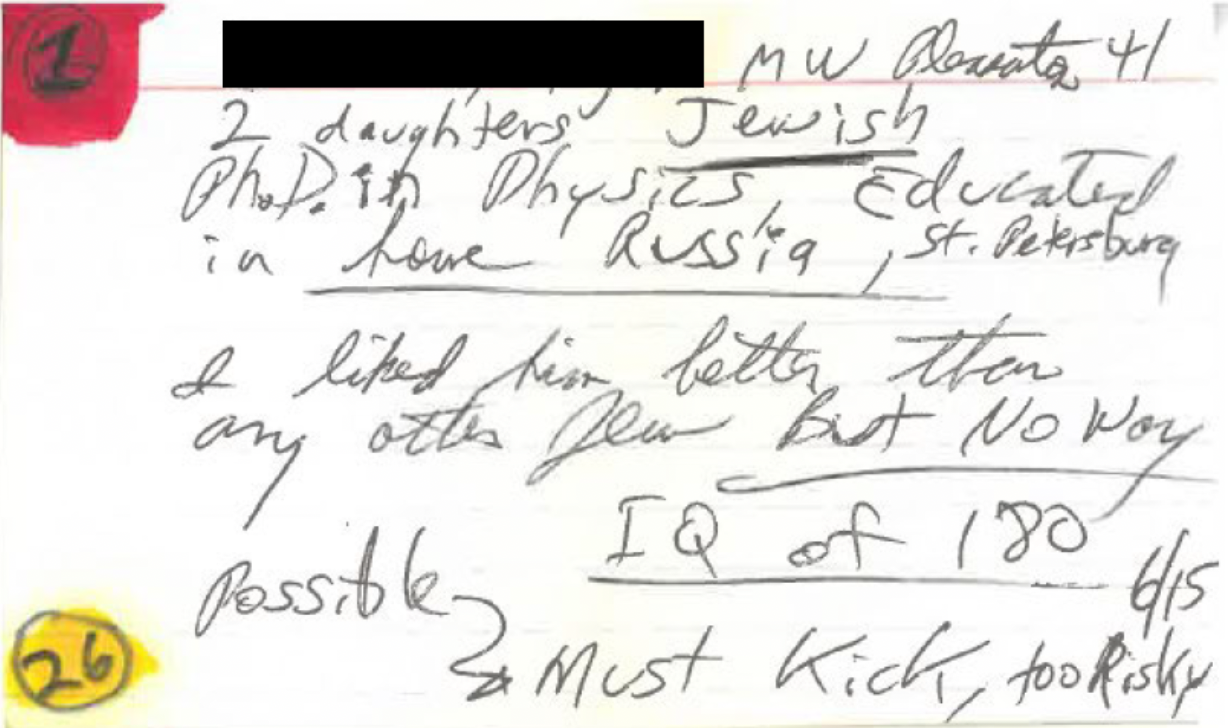 1
MW Pleasanton 41
2 daughters Jewish
Ph.D. in Physics, Educated
in home Russia, St. Petersburg
I liked him better than
any other Jew But No Way
IQ of 180
Possible
6/15
26
→ Must Kick, too Risky